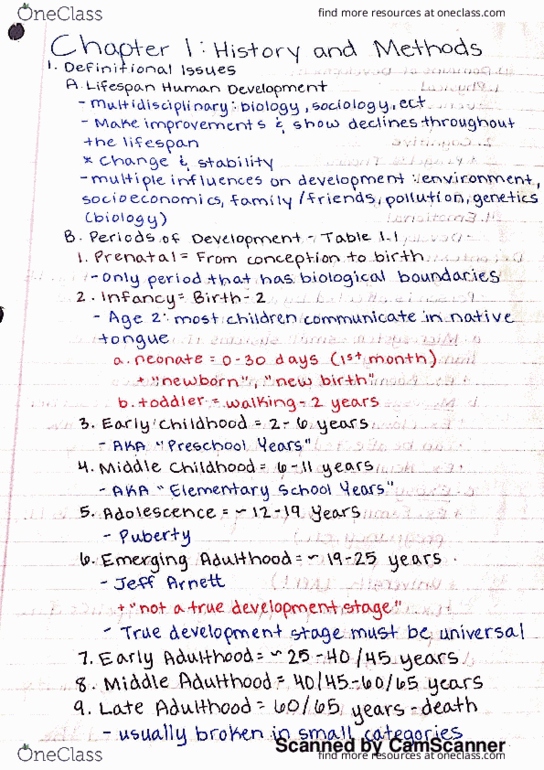 OneClass
find more resources at oneclass.com
Chapter 1: History and Methods
1. Definitional Issues
A. Lifespan Human Development
- multidisciplinary: biology, sociology, ect
- Make improvements & show declines throughout
the lifespan
* Change & stability
- multiple influences on development: environment,
socioeconomics, family/friends, pollution, genetics
(biology)
B. Periods of Development - Table 1.1
1. Prenatal = From conception to birth
- only period that has biological boundaries
2. Infancy = Birth - 2
- Age 2: most children communicate in native
tongue
a. neonate = 0-30 days (1st month)
+ "newborn", "new birth"
b. toddler = walking - 2 years
3. Early Childhood = 2-6 years
- AKA "Preschool Years"
4. Middle Childhood = 6-11 years
- AKA "Elementary School Years"
5. Adolescence = ~12-19 years
- Puberty
6. Emerging Adulthood = ~ 19-25 years
- Jeff Arnett
+ "not a true development stage"
- True development stage must be universal
7. Early Adulthood = ~ 25-40/45 years
8. Middle Adulthood = 40/45-60/65 years
9. Late Adulthood = 60/65 years - death
- usually broken in small categories
Scanned by CamScanner
OneClass
find more resources at oneclass.com